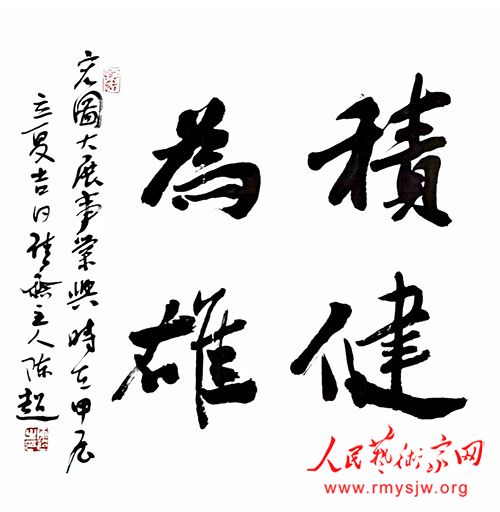 積健
為雄
宏圖大展事業興 時在甲辰
立夏吉日 主人陈超
人民藝術家网
www.rmysjw.org